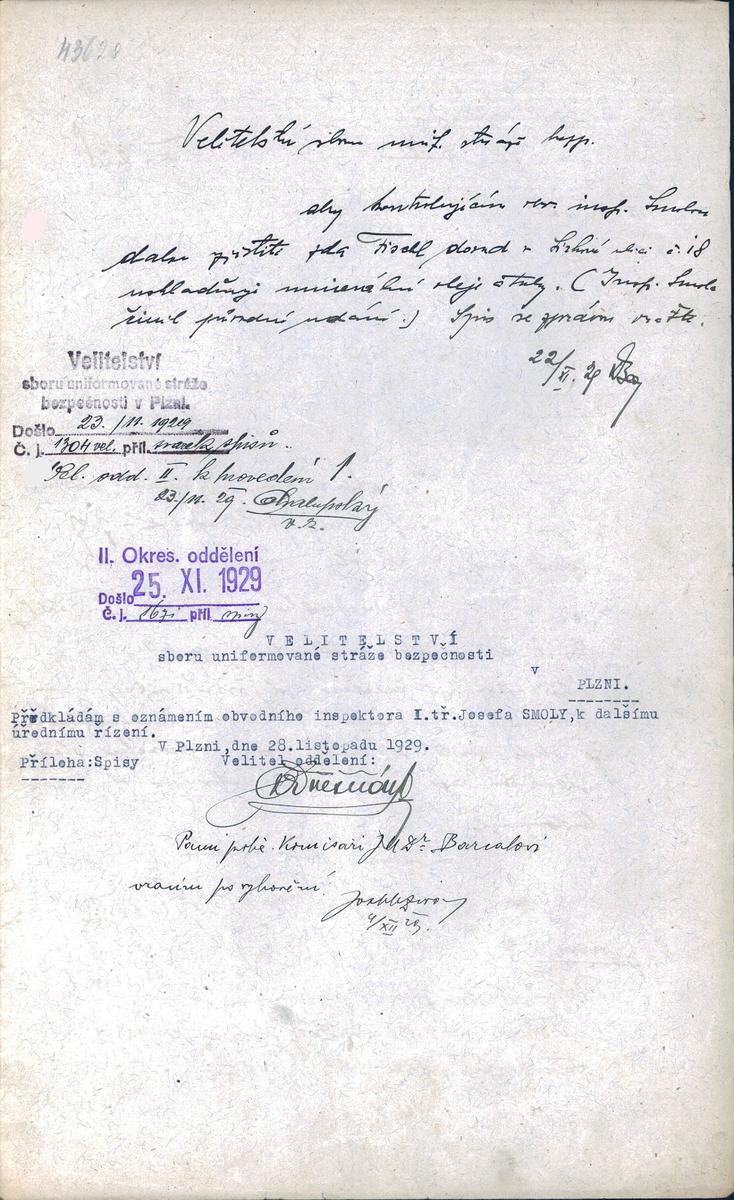 43628
Velitelství sboru unif. stráže bezp.
aby kontrolujícím rev. insp. Smolou
dále zjistiti zda Fischl dosud v ulici č. 18
uskladňuje minerální oleje a tuky. ( Insp. Smola
činil původní udání.) Spis se zprávou vraťte.
22/XI. 29
Velitelství
sboru uniformované stráže
bezpečnosti v Plzni.
Došlo 23./11. 1929
Č. j. 1304 vel. příl. spisů.
Kl. odd. II. k provedení
23/11. 29. Chalupský
v. z.
II. Okres. oddělení
Došlo 25. XI. 1929
Č. j. příl.
VELITELSTVÍ
sboru uniformované stráže bezpečnosti
v
PLZNI.
Předkládám s oznámením obvodního inspektora I.tř.Josefa SMOLY,k dalšímu
úřednímu řízení.
V Plzni,dne 28.listopadu 1929.
Příloha:Spisy Velitel oddělení:
Panu pobě. Komisaři JUDr. Barcalovi
vracím po vykonění.
4/XII 29.